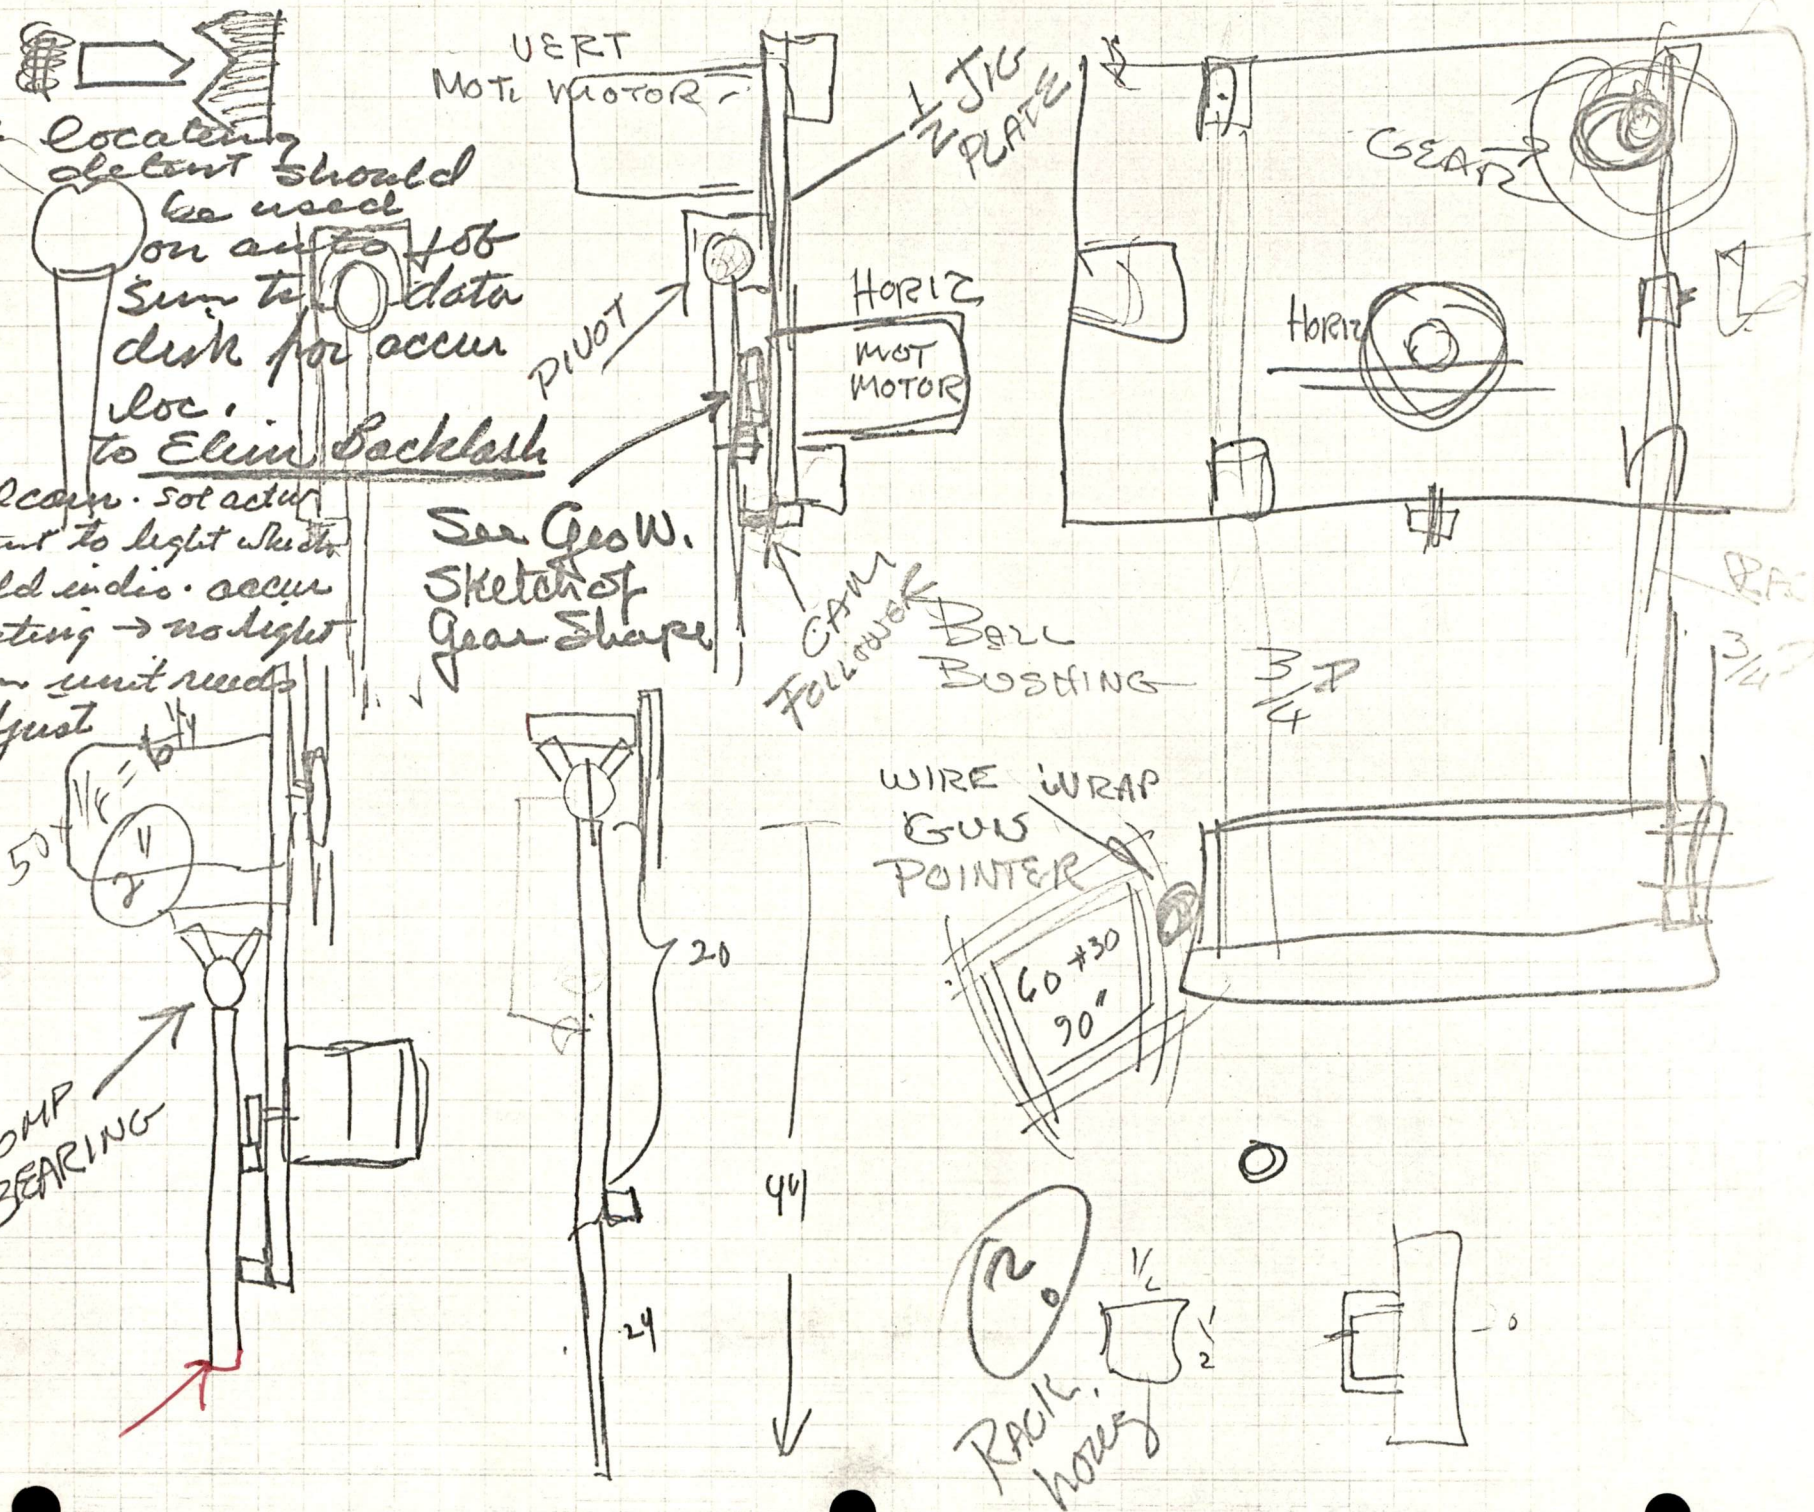 locating
detent should
be used
on auto job
data
disk for accur
loc.
to Elim Backlash
to light which
indic. accur
→ no light
unit needs
VERT
MOT. MOTOR
1/2 JIG
PLATE
PIVOT
HORIZ
MOT
MOTOR
See Geo W.
Sketch of
Gear Shape
CAM
FOLLOWER
BALL
BUSHING
GEAR
HORIZ
3/4
3/4
WIRE WRAP
GUN
POINTER
60 #30
90"
50
BEARING
20
44
24
1/2
RACK